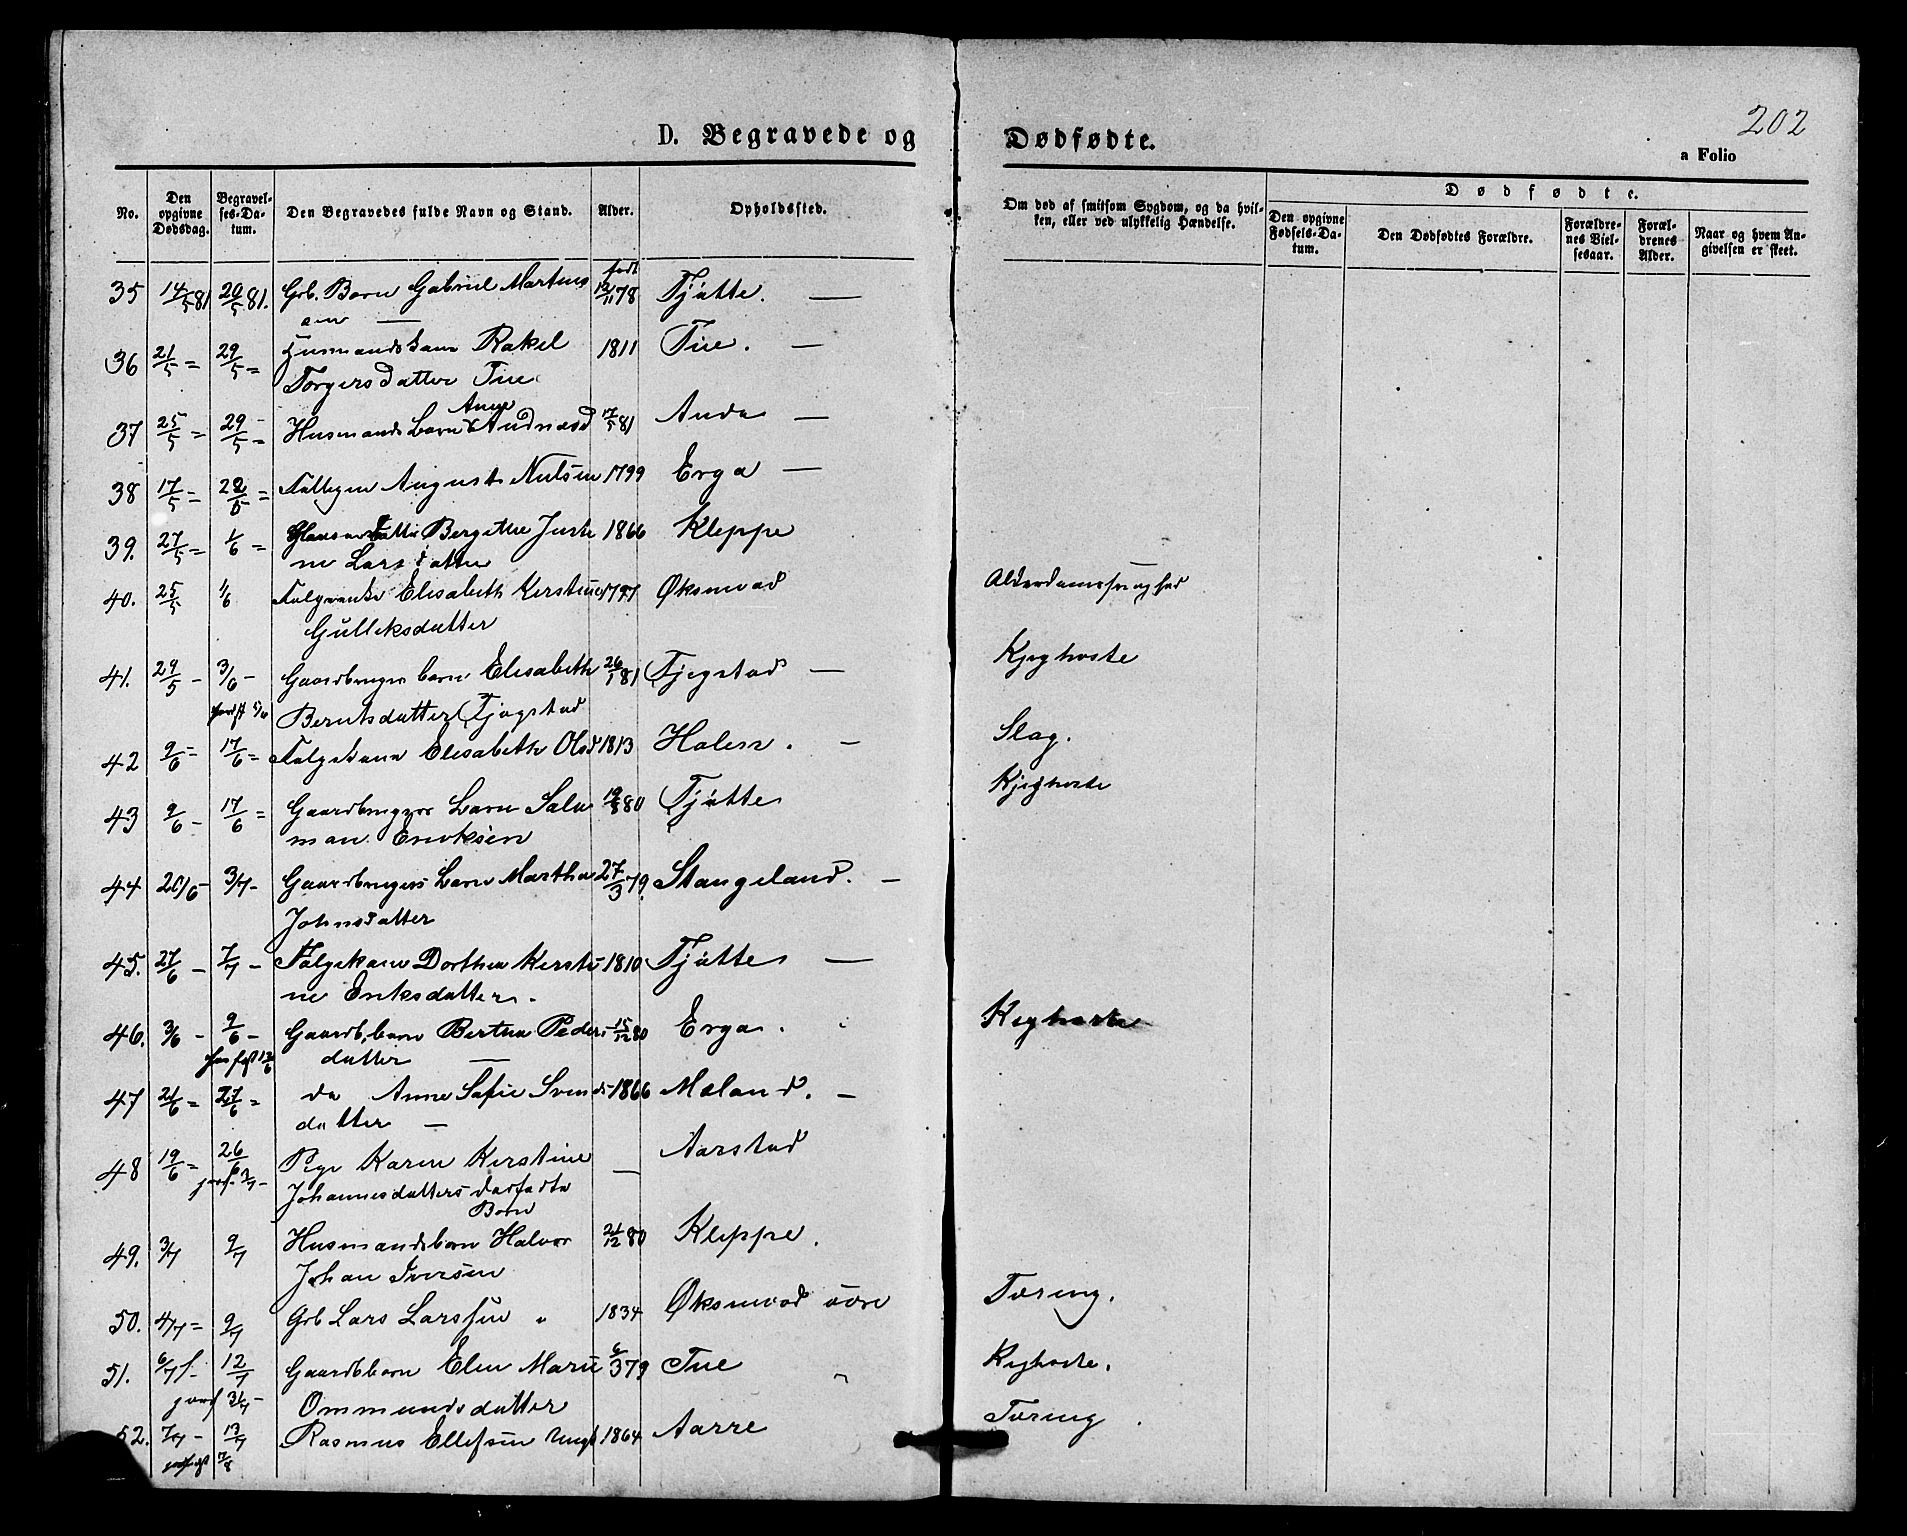 202
D. Begravede og Dødfødte.
a Folio
No.
Den opgivne Dødsdag.
Begravelses-Datum.
Den Begravedes fulde Navn og Stand.
Alder.
Opholdssted.
Om død af smitsom Sygdom, og da hvilken, eller ved ulykkelig Hændelse.
Dødfødte.
Den opgivne Fødsels-Datum.
Den Dødfødtes Forældre.
Forældrenes Vielsesaar.
Forældrenes Alder.
Naar og hvem Angivelsen er skeet.
35 14/5 81 20/5 81. Grb. Barn Gabriel Martins født 12/11 78 Tjøtte. —
sen —
36 21/5 = 29/5 = Husmandskone Rakel 1811 Tue. —
Torgersdatter Tue
Anne
37 25/5 = 29/5 = Husmands Barn Audnæsd 17/5 81 Anda —
38 17/5 = 22/5 = August Nilsen 1799 Erga —
39. 27/5 = 1/6 = Bergitte Justi 1866 Kleppe
ne Larsdatter
40. 25/5 1/6 Elisabeth Kerstine 1797 Øksnevad Alderdomssvaghed
Gulleksdatter
41. 29/5 - 3/6 - Gaardbruger barn Elisabeth 26/1 81 Tjøgstad — Kighoste
Berntsdatter Tjøgstad
42 9/6 = 17/6 = Folgekone Elisabeth Olsd 1813 Holen. — Slag.
43 9/6 - 17/6 = Gaardbrugers Barn Salo 19/8 80 Tjøtte Kjighoste
mon Eriksen
44 20/6 - 3/7 - Gaardbrugers Barn Martha 27/3 79. Stangeland. —
Johnsdatter
45. 27/6 - 7/7 - Folgekone Dorthea Kersti 1810 Tjøtte —
ne Eriksdatter.
46. 3/6 - 9/6 - Gaardb. barn Bertha Peders 15/12 80 Erga. Kighoste
datter —
47 21/6 = 27/6 = do Anne Sofie Svends 1866 Møland. —
datter —
48 19/6 = 26/6 Pige Karen Kerstine — Aarstad
Johannesdatters dødfødte
Barn
49. 3/7 9/7 Husmandsbarn Halvor 21/12 80 Kleppe.
Johan Iversen
50. 4/7 = 9/7 Grb Lars Larssen 1834 Øksnevad øvre Tæring.
51. 6/7 12/7 Gaardbbarn Elen Marie 6/3 79 Tue Kighoste.
Ommundsdatter
52. 7/7 - 13/7 Rasmus Ellefsen Ungk 1864 Aarre Tæring